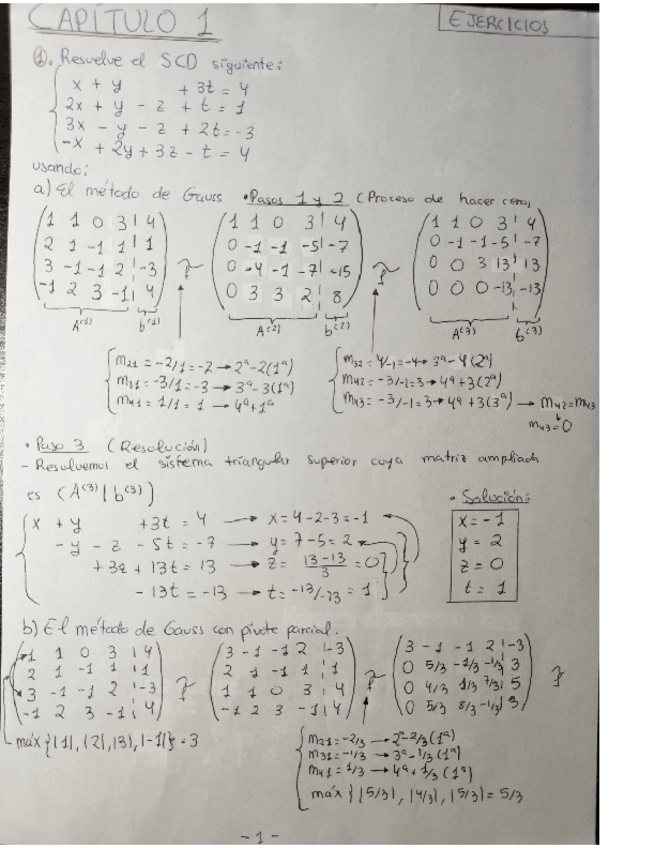 CAPÍTULO 1
EJERCICIOS
1. Resuelve el SCD siguiente:
x + y + 3t = 4
2x + y - z + t = 1
3x - y - z + 2t = -3
-x + 2y + 3z - t = 4
usando:
a) El método de Gauss • Pasos 1 y 2 (Proceso de hacer ceros)
1 1 0 3 | 4
2 1 -1 1 | 1
3 -1 -1 2 | -3
-1 2 3 -1 | 4
A(1) b(1)
1 1 0 3 | 4
0 -1 -1 -5 | -7
0 -4 -1 -7 | -15
0 3 3 2 | 8
A(2) b(2)
1 1 0 3 | 4
0 -1 -1 -5 | -7
0 0 3 13 | 13
0 0 0 -13 | -13
A(3) b(3)
m21 = -2/1 = -2 → 2ª-2(1ª)
m31 = -3/1 = -3 → 3ª-3(1ª)
m41 = 1/1 = 1 → 4ª+1ª
m32 = 4/-1 = -4 → 3ª-4(2ª)
m42 = -3/-1 = 3 → 4ª+3(2ª)
m43 = -3/-1 = 3 → 4ª+3(3ª) → m42 = m43
m43 = 0
• Paso 3 (Resolución)
- Resolvemos el sistema triangular superior cuya matriz ampliada
es (A(3) | b(3))
• Solución:
x + y + 3t = 4 → x = 4-2-3 = -1
-y - z - 5t = -7 → y = 7-5 = 2
+3z + 13t = 13 → z = 13-13/3 = 0
-13t = -13 → t = -13/-13 = 1
x = -1
y = 2
z = 0
t = 1
b) El método de Gauss con pivote parcial.
1 1 0 3 | 4
2 1 -1 1 | 1
3 -1 -1 2 | -3
-1 2 3 -1 | 4
máx {|1|, |2|, |3|, |-1|} = 3
3 -1 -1 2 | -3
2 1 -1 1 | 1
1 1 0 3 | 4
-1 2 3 -1 | 4
3 -1 -1 2 | -3
0 5/3 -1/3 -1/3 | 3
0 4/3 1/3 7/3 | 5
0 5/3 8/3 -1/3 | 3
m21 = -2/3 → 2ª-2/3(1ª)
m31 = -1/3 → 3ª-1/3(1ª)
m41 = 1/3 → 4ª+1/3(1ª)
máx {|5/3|, |4/3|, |5/3| = 5/3
-1-